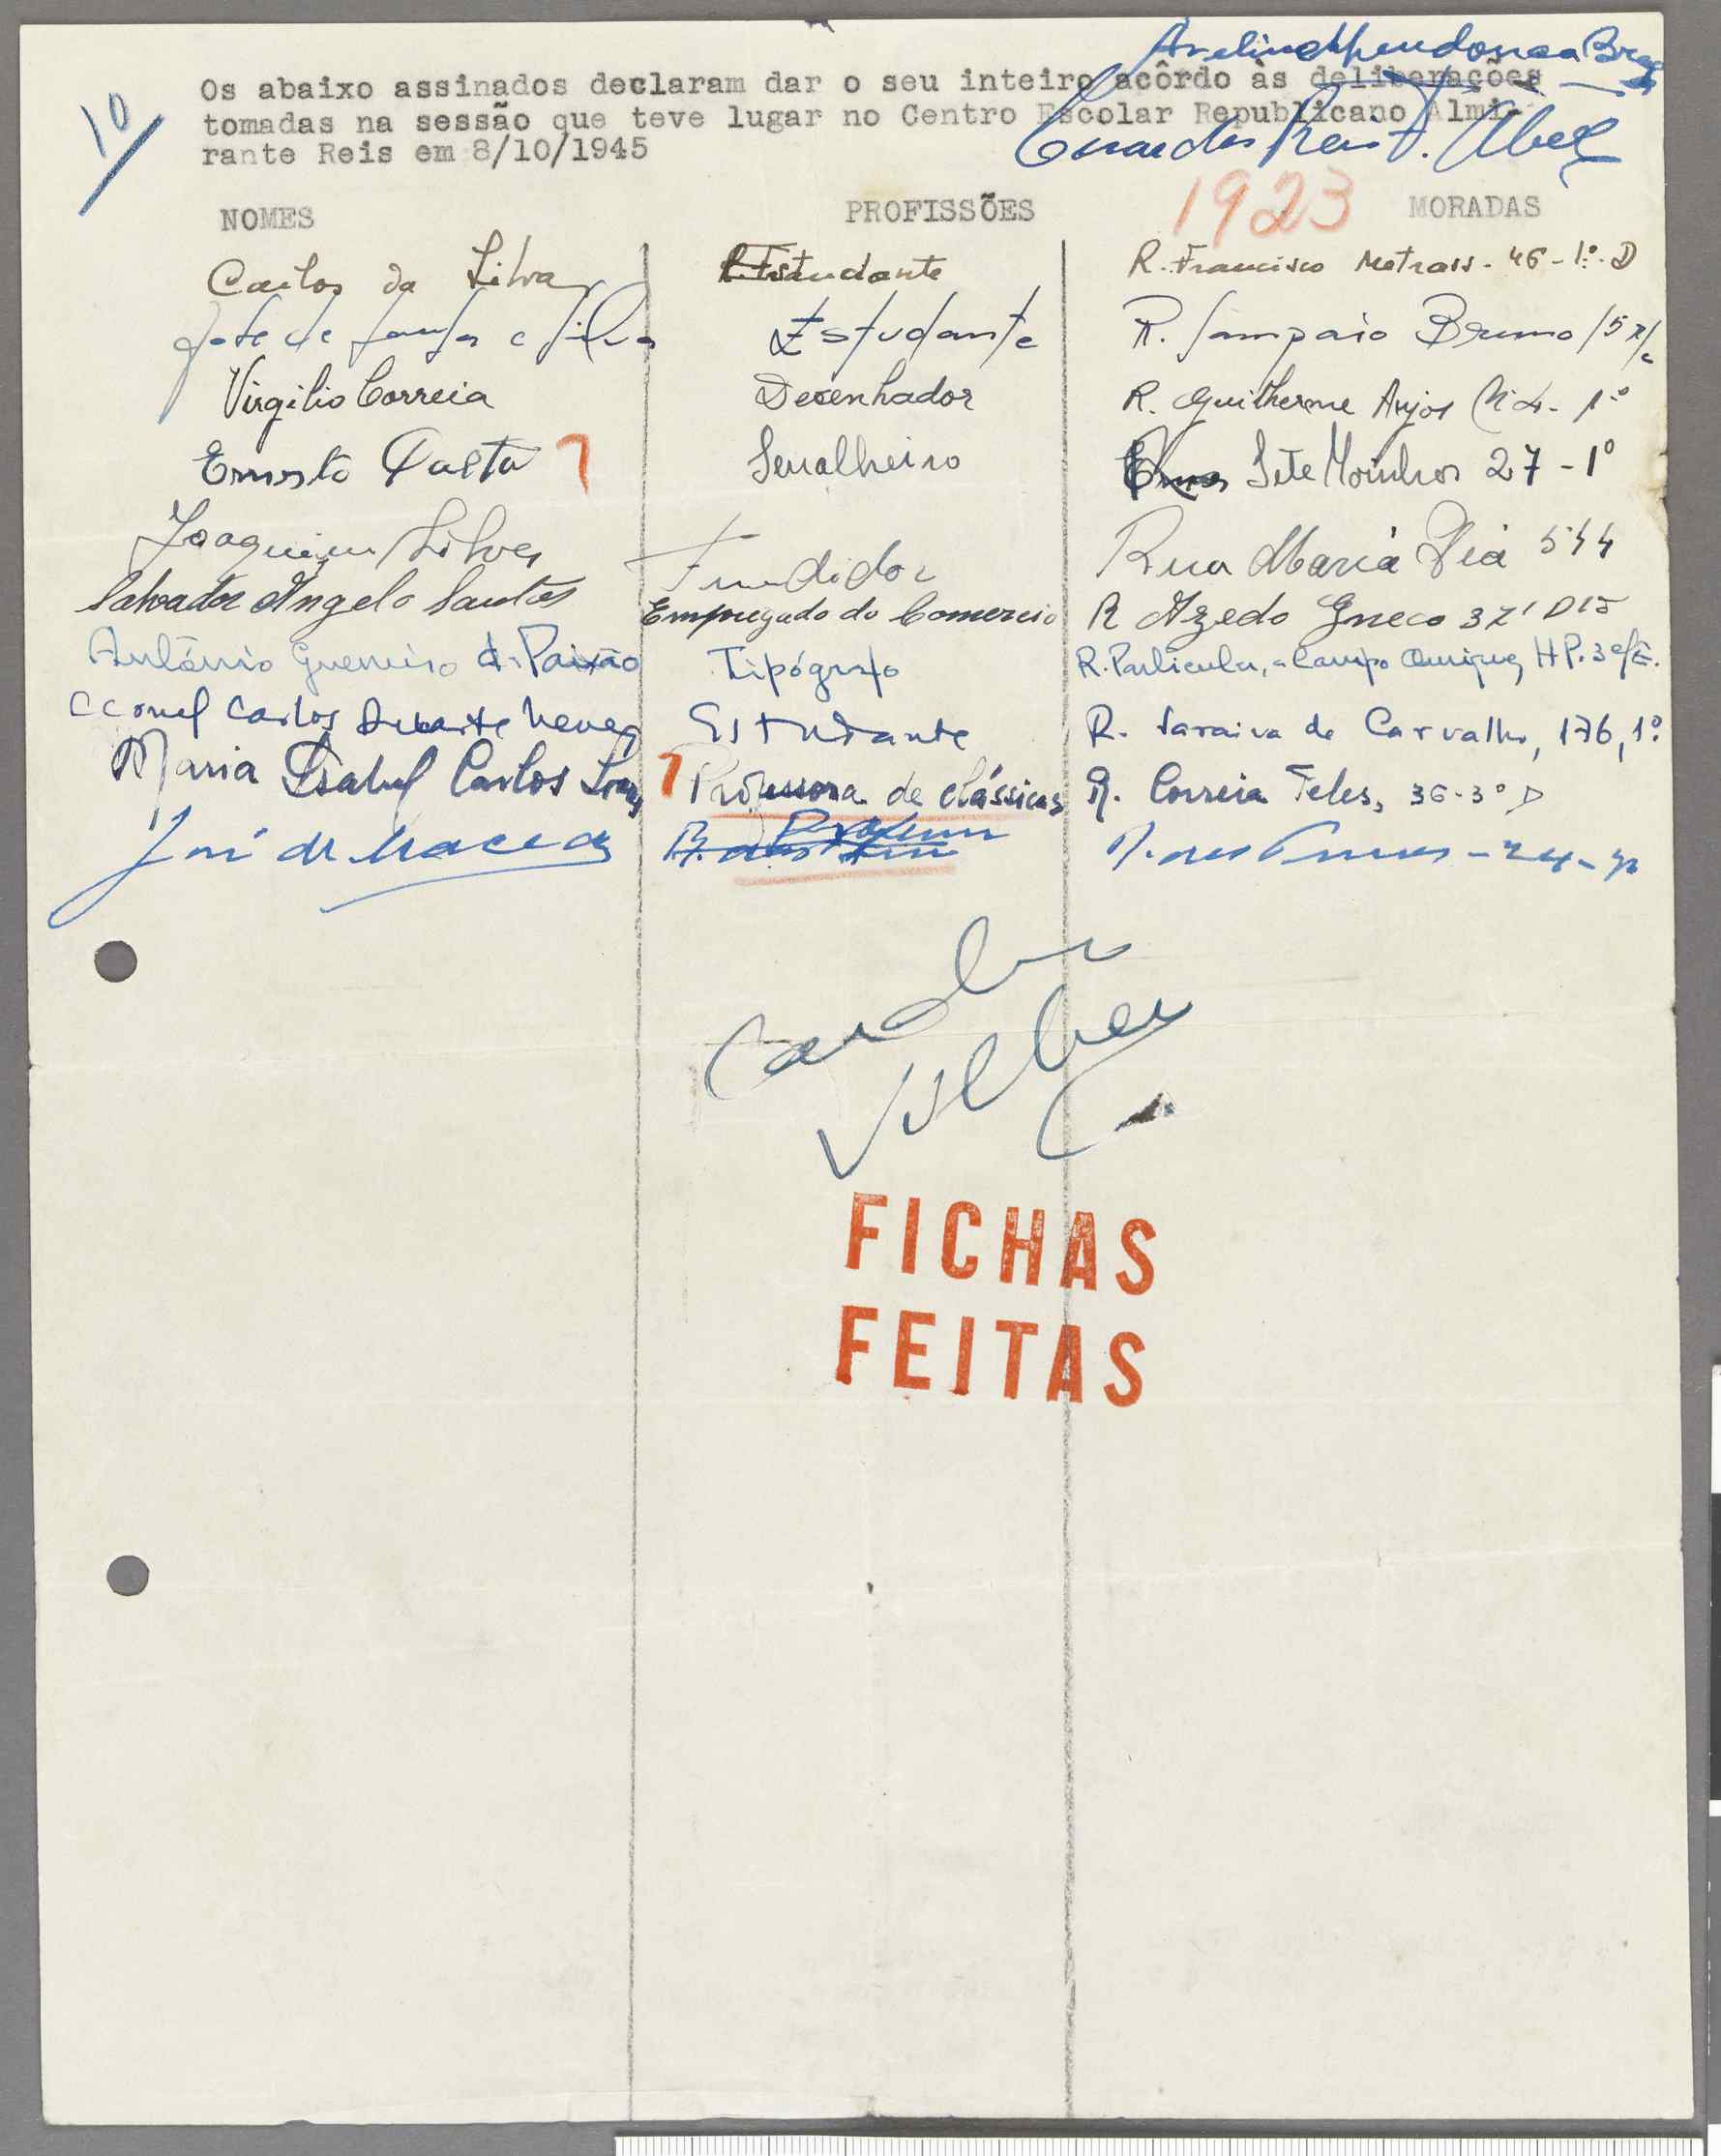 Avelino Mendonça Braga
Os abaixo assinados declaram dar o seu inteiro acôrdo às deliberações
tomadas na sessão que teve lugar no Centro Escolar Republicano Almi-
rante Reis em 8/10/1945
10
Abel
NOMES PROFISSÕES 1923 MORADAS
Carlos da Silva Estudante R. Francisco Metrass - 46 - 1º. D
Estudante R. Sampaio Bruno 15 R/c
Virgilio Correia Desenhador R. Guilherme Anjos 1º
Ernesto Serralheiro Sete Moinhos 27 - 1º
Joaquim Silva Fundidor Rua Maria Pia 544
Salvador Angelo Santos Empregado do Comercio R Azedo Gneco
António Guerreiro da Paixão Tipógrafo R. Particular, a Campo Ourique, HP. 3º/E.
Leonel Carlos Duarte Neves Estudante R. Saraiva de Carvalho, 176, 1º
Maria Isabel Carlos Professora de clássicas R. Correia Teles, 36-3º D
José de Macedo
FICHAS
FEITAS